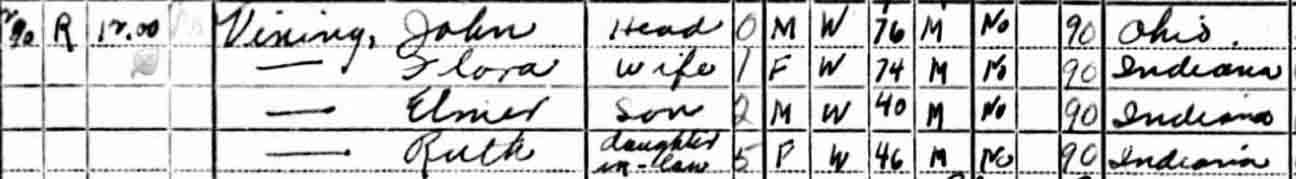 90 R 12.00 Vining, John Head 0 M W 76 M No 90 Ohio.
— Flora Wife 1 F W 74 M No 90 Indiana
— Elmer Son 2 M W 40 M No 90 Indiana
— Ruth daughter in-law 5 F W 46 M No 90 Indiana